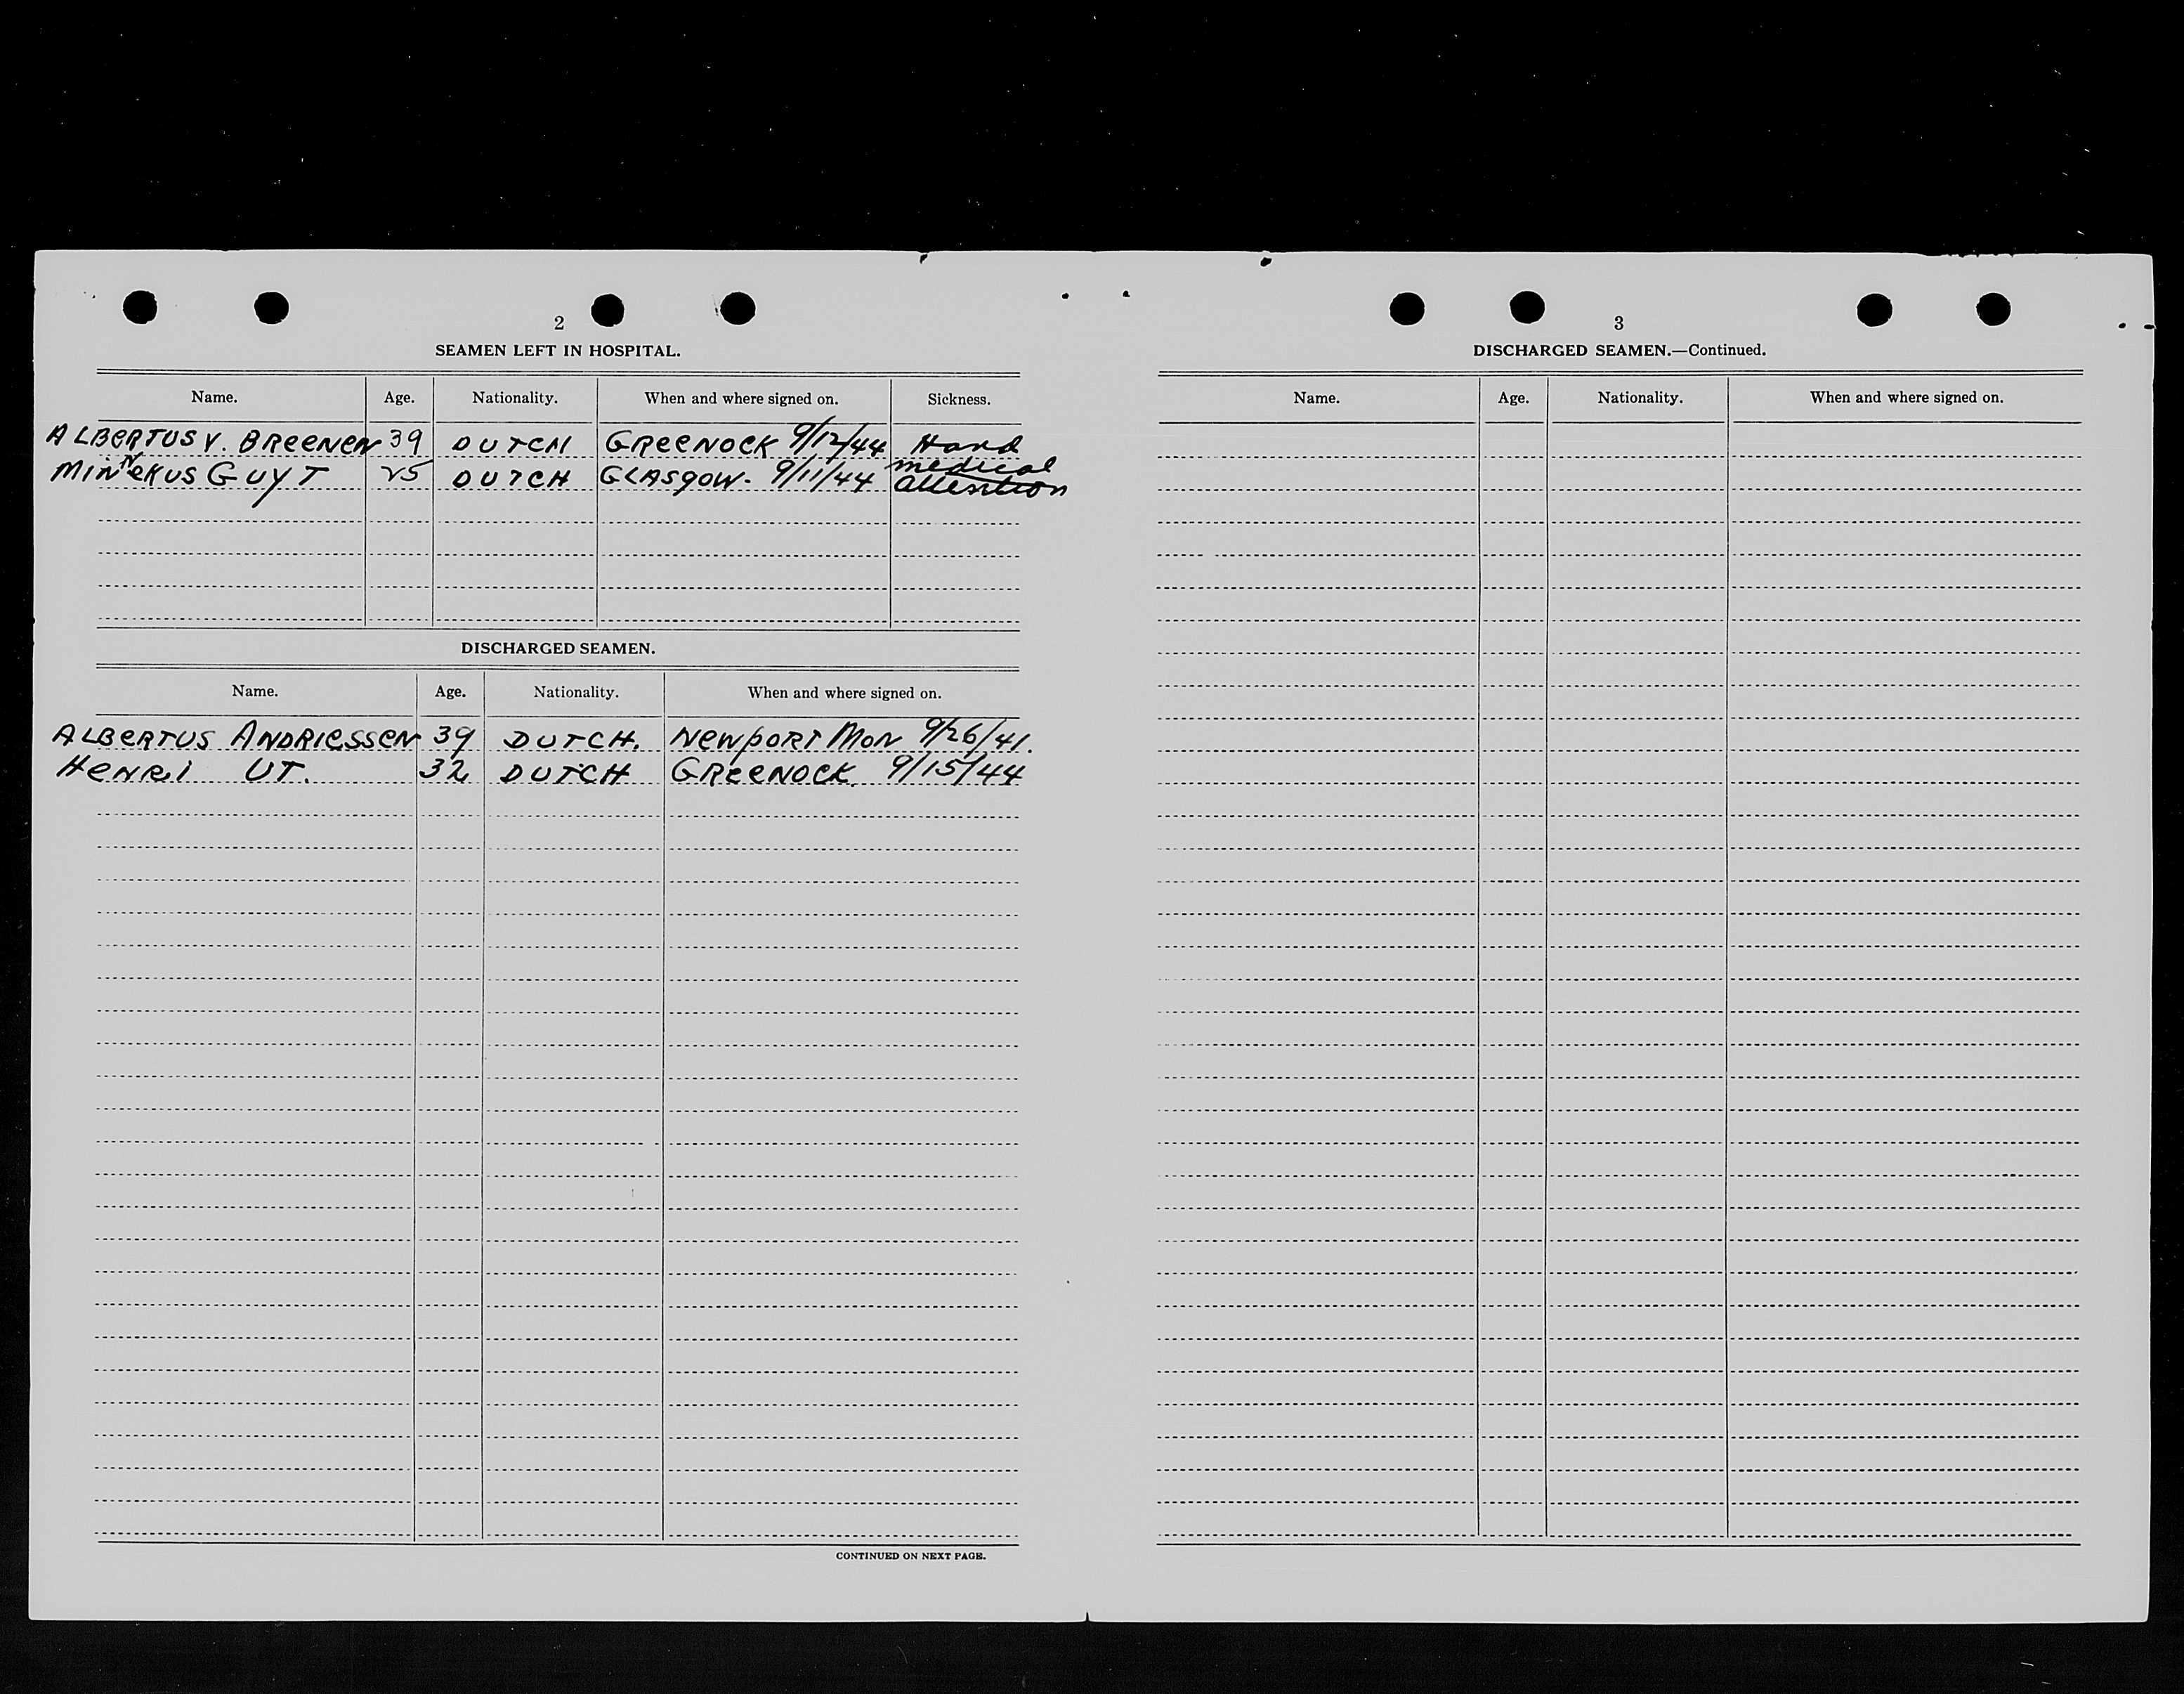 2
SEAMEN LEFT IN HOSPITAL.
Name. Age. Nationality. When and where signed on. Sickness.
ALBERTUS V. BREENEN 39 DUTCH GREENOCK 9/12/44 Hand
MINNEKUS GUYT 25 DUTCH GLASGOW - 9/11/44 medical attention
DISCHARGED SEAMEN.
Name. Age. Nationality. When and where signed on.
ALBERTUS ANDRIESSEN 39 DUTCH. NEWPORT MON 9/26/41.
HENRI UT. 32 DUTCH GREENOCK. 9/15/44
CONTINUED ON NEXT PAGE.
3
DISCHARGED SEAMEN.—Continued.
Name. Age. Nationality. When and where signed on.